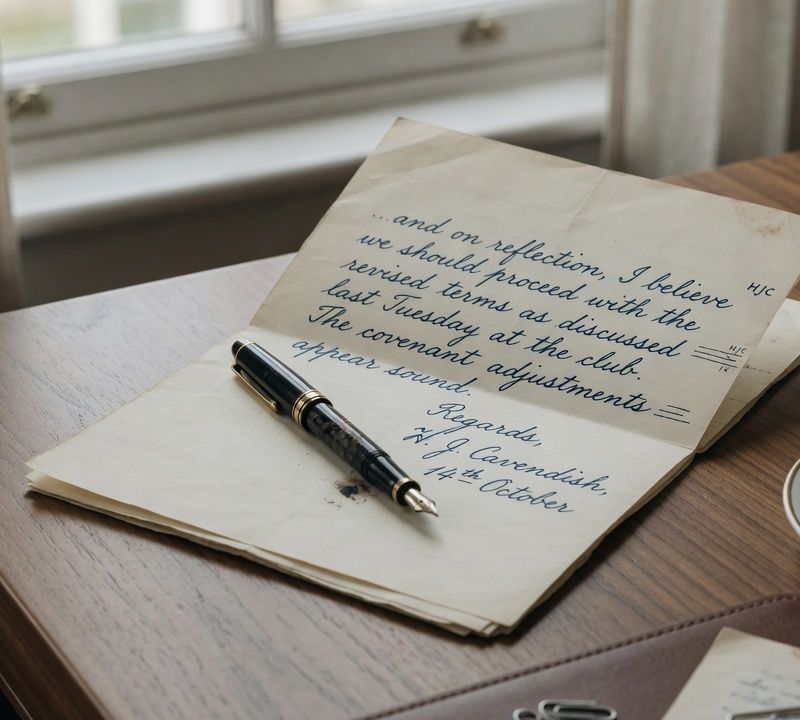 ...and on reflection, I believe
we should proceed with the
revised terms as discussed
last Tuesday at the club.
The covenant adjustments
appear sound.
Regards,
H. J. Cavendish,
14th October
HJC
HJC